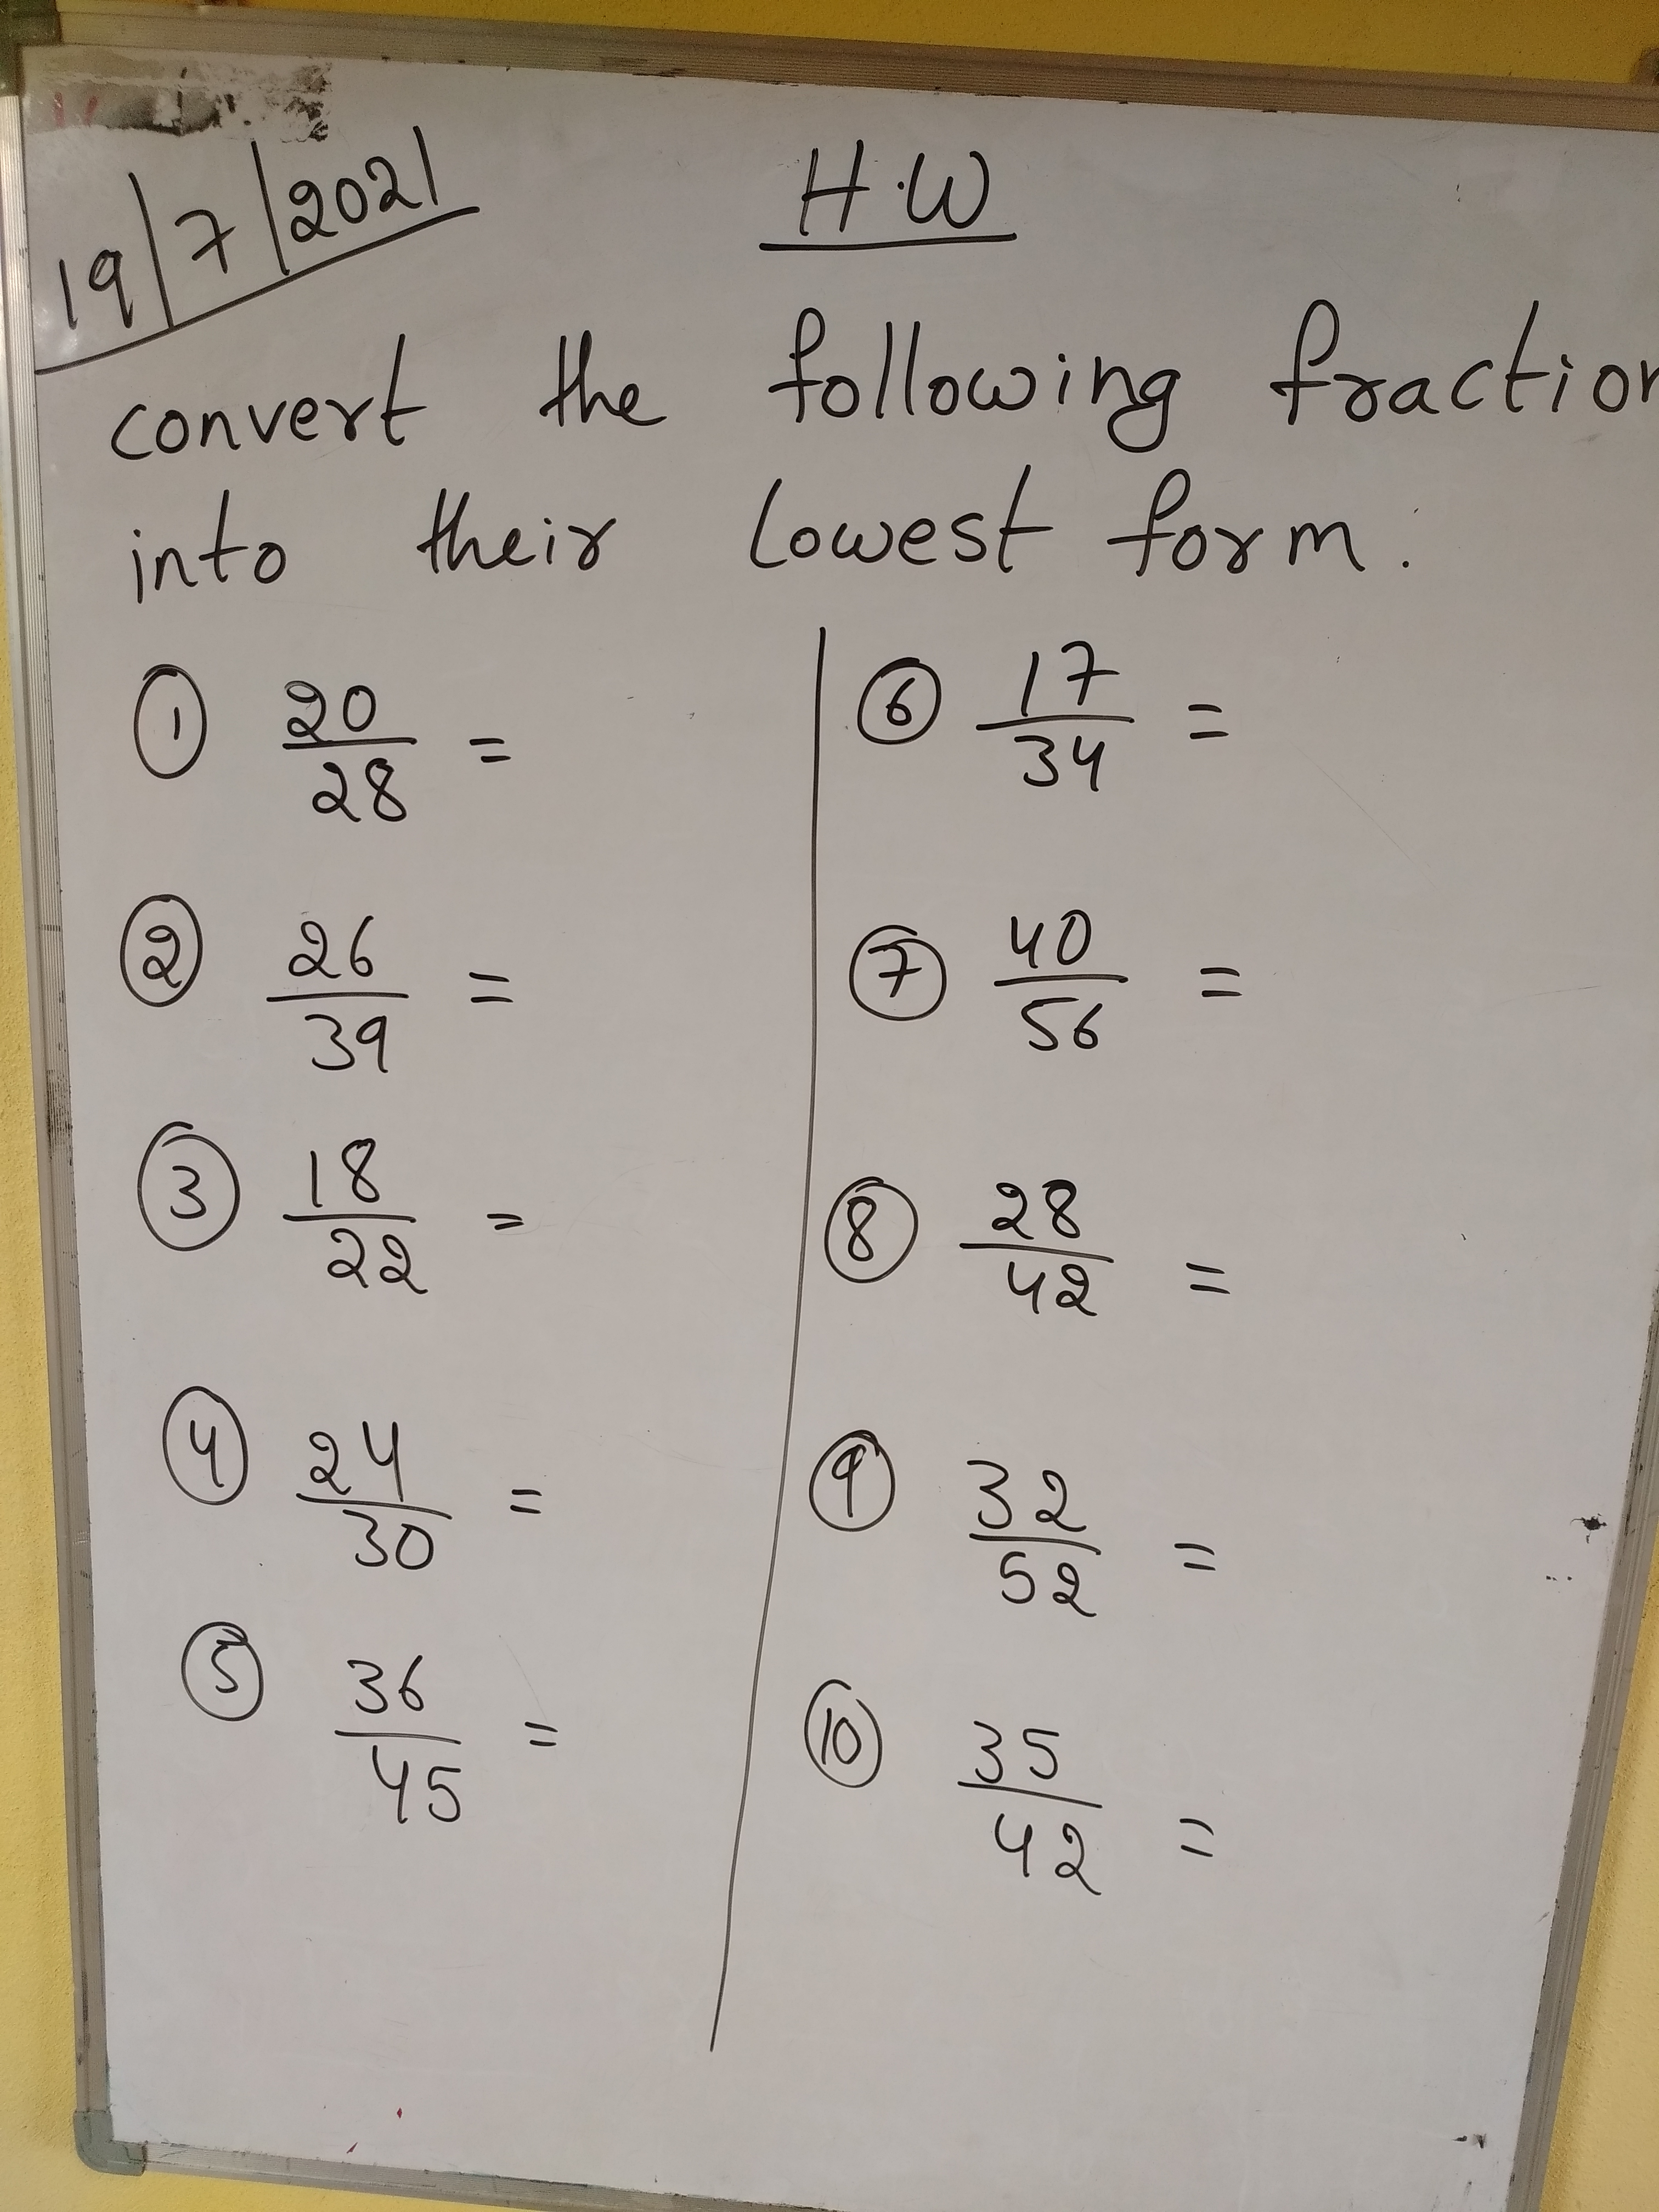 19/7/2021
H.W
convert the following fraction
into their lowest form.
① 20/28 =
② 26/39 =
③ 18/22 =
④ 24/30 =
⑤ 36/45 =
⑥ 17/34 =
⑦ 40/56 =
⑧ 28/42 =
⑨ 32/52 =
⑩ 35/42 =